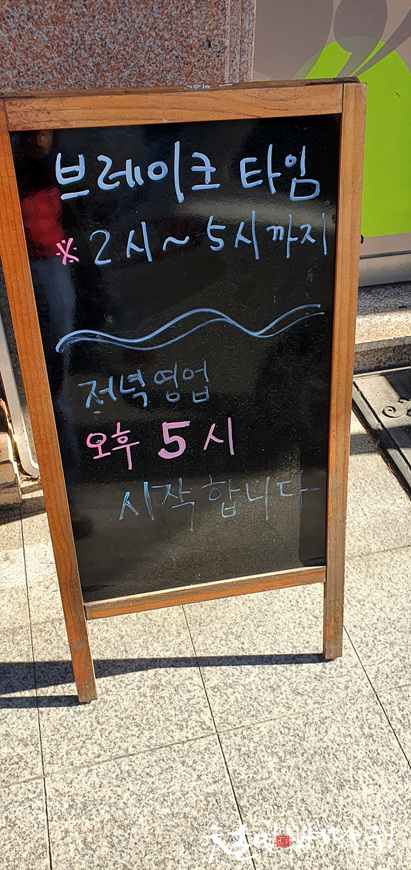 브레이크 타임
※ 2시~5시까지
저녁영업
오후 5시
시작합니다